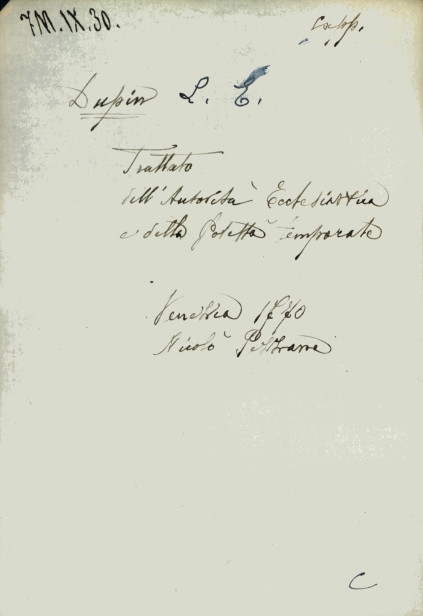 7M.IX.30.
Dupin L. E.
Trattato
dell'Autorità Ecclesiastica
e della Potestà temporale
Venezia 1770
Nicolò
C